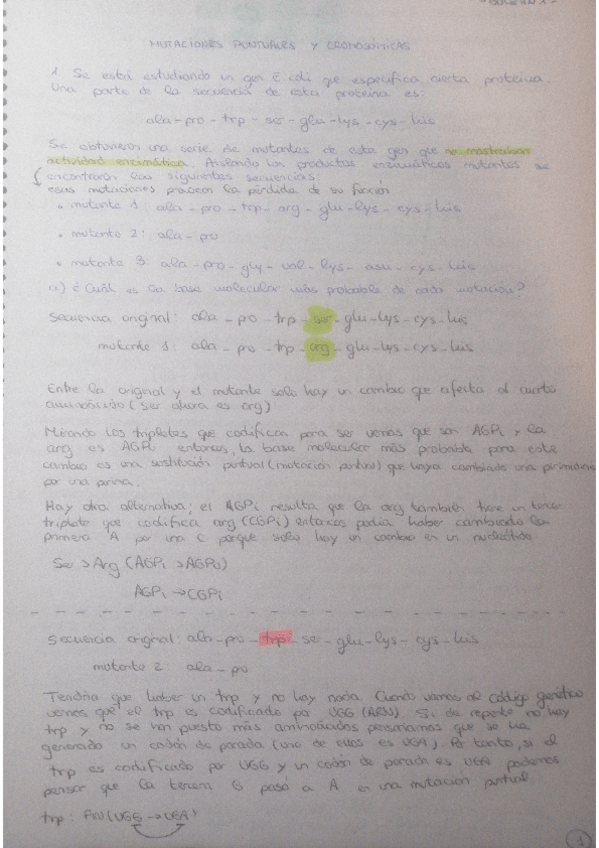 MUTACIONES PUNTUALES Y CROMOSÓMICAS
1 Se está estudiando un gen E coli que especifica cierta proteína.
Una parte de la secuencia de esta proteína es:
ala-pro-trp-ser-glu-lys-cys-his
Se obtuvieron una serie de mutantes de este gen que no mostraban
actividad enzimática. Aislando los productos enzimáticos mutantes se
encontraron las siguientes secuencias
esas mutaciones provocan la pérdida de su función
• mutante 1: ala-pro-trp-arg-glu-lys-cys-his
• mutante 2: ala-pro
• mutante 3: ala-pro-gly-val-lys-asn-cys-his
a) ¿Cuál es la base molecular más probable de cada mutación?
Secuencia original: ala-pro-trp-ser-glu-lys-cys-his
mutante 1: ala-pro-trp-arg-glu-lys-cys-his
Entre la original y el mutante solo hay un cambio que afecta al cuarto
aminoácido (ser ahora es arg)
Mirando los tripletes que codifican para ser vemos que son AGPi y la
arg es AGPu entonces, la base molecular más probable para este
cambio es una sustitución puntual (mutación puntual) que haya cambiado una pirimidina
por una purina.
Hay otra alternativa; el AGPi resulta que la arg también tiene un tercer
triplete que codifica arg (CGPi) entonces podía haber cambiado la
primera A por una C porque solo hay un cambio en un nucleótido
Se > Arg (AGPi > AGPu)
AGPi → CGPi
Secuencia original: ala-pro-trp-se-glu-lys-cys-his
mutante 2: ala-pro
Tendría que haber un trp y no hay nada. Cuando vamos al código genético
vemos que el trp es codificado por UGG (ARN). Si de repente no hay
trp y no se han puesto más aminoácidos pensaríamos que se ha
generado un codón de parada (uno de ellos es UGA). Por tanto, si el
trp es codificado por UGG y un codón de parada es UGA podemos
pensar que la tercera G pasó a A en una mutación puntual
trp: FIN (UGG → UGA)
1